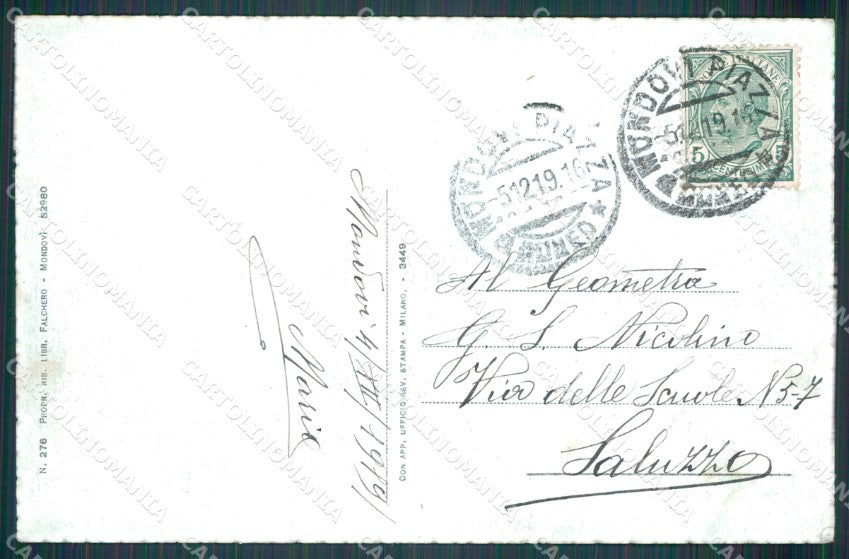 N. 276 PROPR. RIS. LIBR. FALCHERO - MONDOVÌ 82980
Mondovì 4/XII/1919/
Maria
CON APP. UFFICIO REV. STAMPA - MILANO. - 3449
MONDOVI PIAZZA
5.12.19.16
CUNEO
MONDOVI PIAZZA
5.12.19.16
CUNEO
5
Al Geometra
G. S. Nicolino
Via delle Scuole N 5-7
Saluzzo
CARTOLINOMANIA